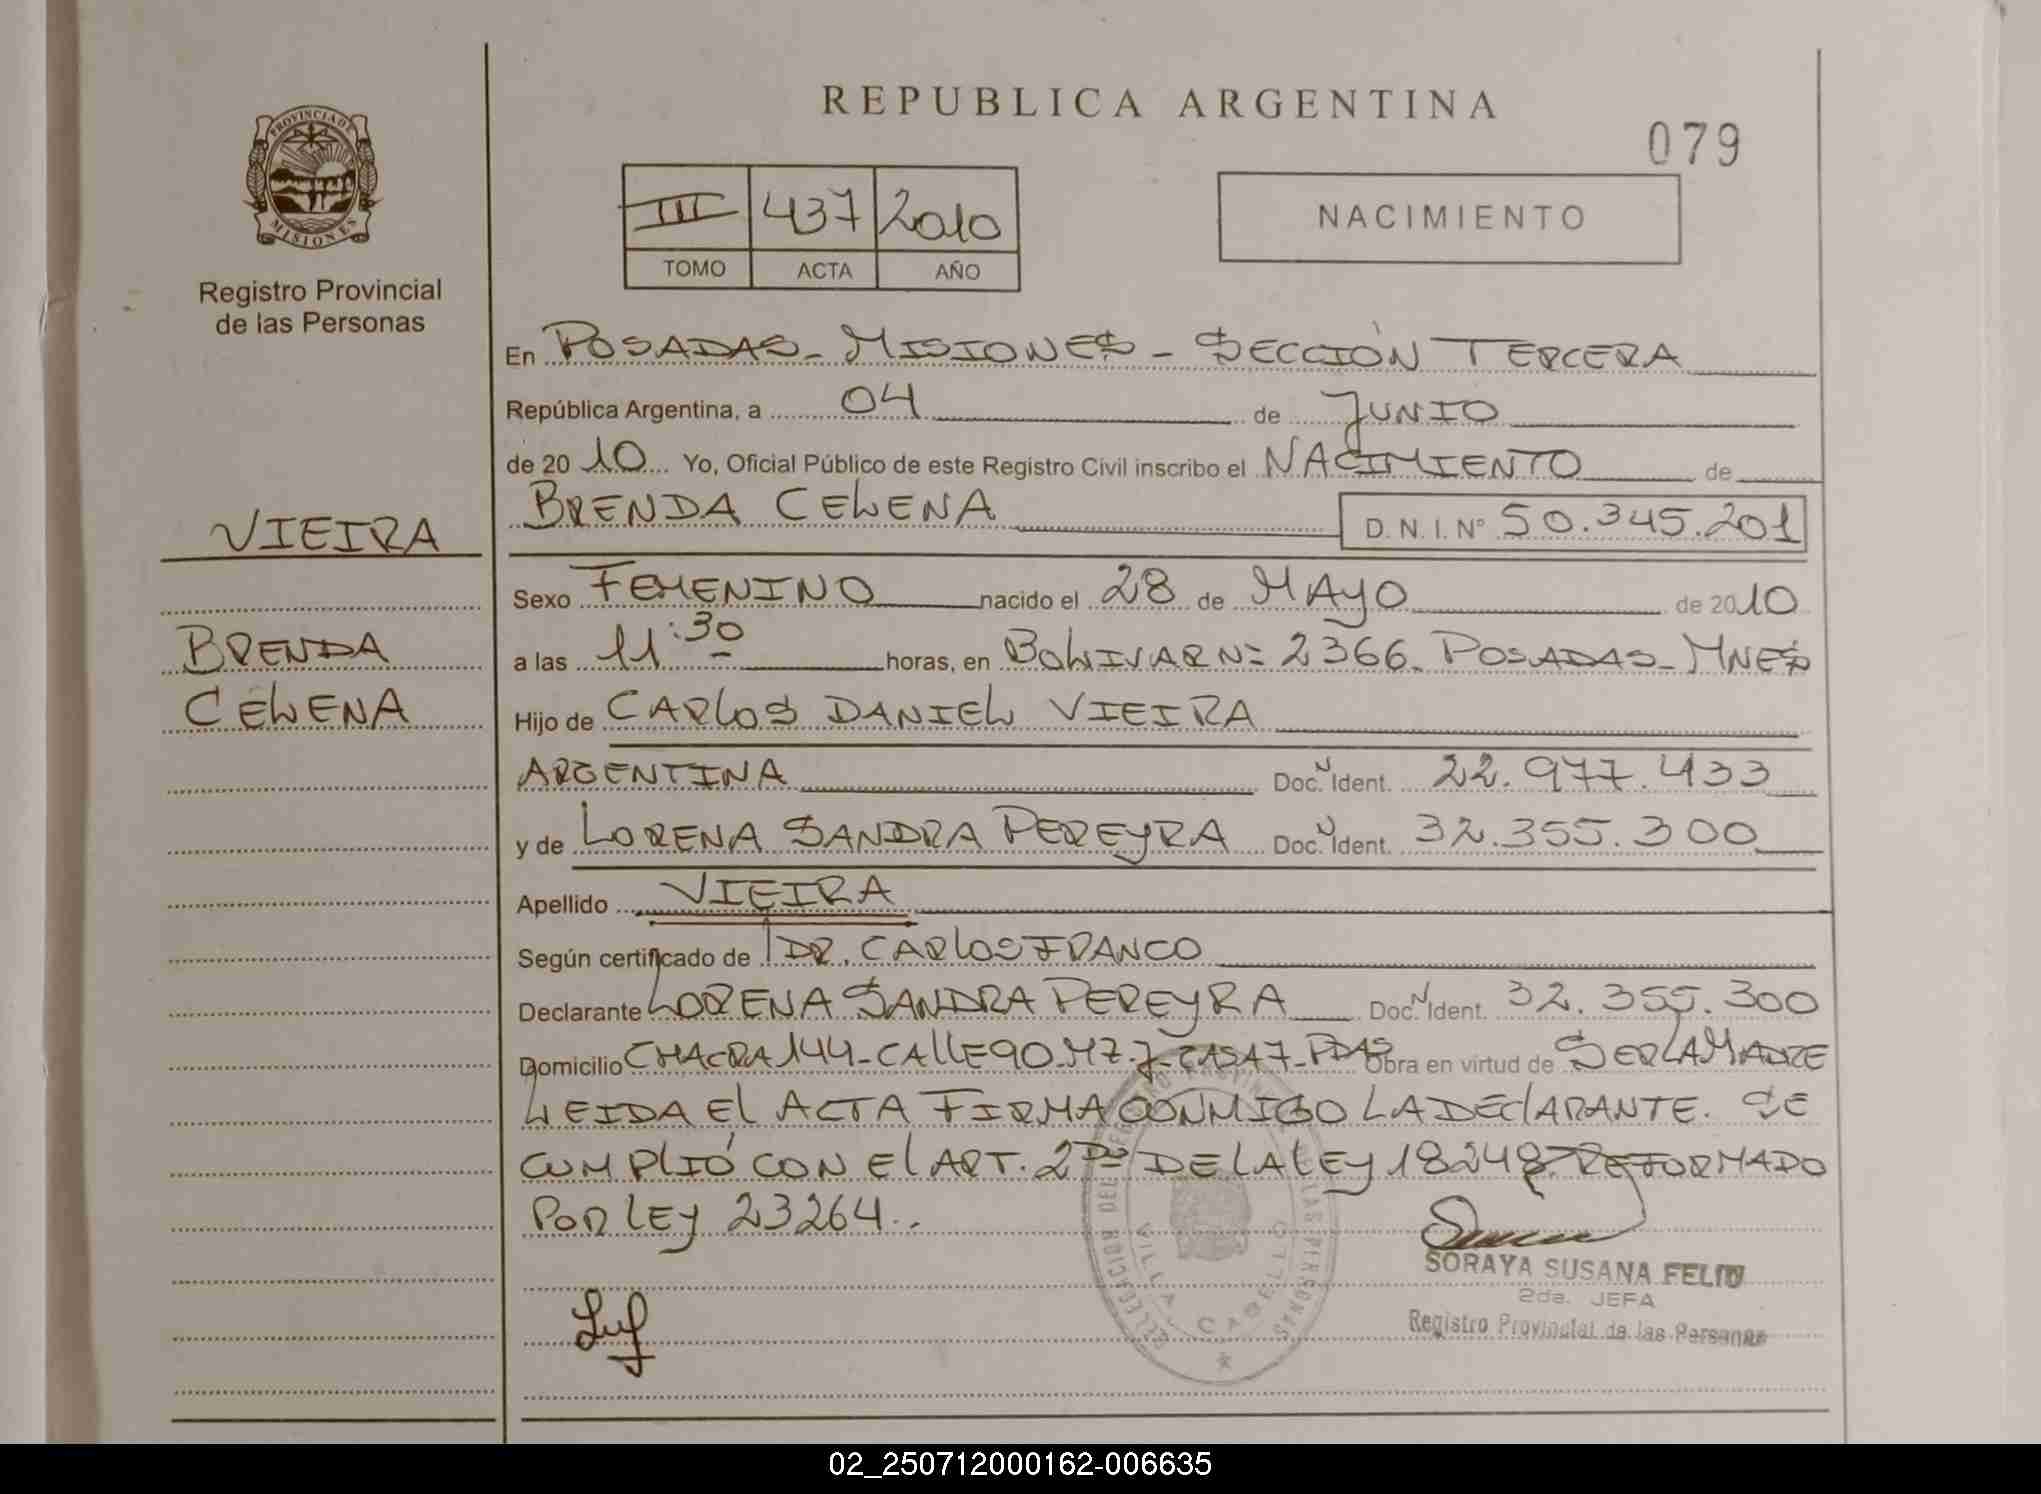 REPUBLICA ARGENTINA
079
PROVINCIA DE
MISIONES
Registro Provincial
de las Personas
III 437 2010
TOMO ACTA AÑO
NACIMIENTO
En POSADAS - MISIONES - SECCIÓN TERCERA
República Argentina, a 04 de JUNIO
de 20 10 Yo, Oficial Público de este Registro Civil inscribo el NACIMIENTO de
BRENDA CELENA D. N. I. Nº 50.345.201
VIEIRA
BRENDA
CELENA
Sexo FEMENINO nacido el 28 de MAYO de 2010
a las 11:30 horas, en BOLIVAR Nº 2366 - POSADAS - MNES
Hijo de CARLOS DANIEL VIEIRA
ARGENTINA Doc. Ident. 22.977.433
y de LORENA SANDRA PEREYRA Doc. Ident. 32.355.300
Apellido VIEIRA
Según certificado de DR. CARLOS FRANCO
Declarante LORENA SANDRA PEREYRA Doc. Ident. 32.355.300
Domicilio CHACRA 144 - CALLE 90 - MZ. J - CASA 7 - PDAS Obra en virtud de SER LA MADRE
LEIDA EL ACTA FIRMA CONMIGO LA DECLARANTE. SE
CUMPLIÓ CON EL ART. 2DO DE LA LEY 18248 REFORMADO
POR LEY 23264..
DELEGACION DEL REGISTRO PROVINCIAL DE LAS PERSONAS
VILLA CABELLO
SORAYA SUSANA FELIU
2da. JEFA
Registro Provincial de las Personas
02_250712000162-006635